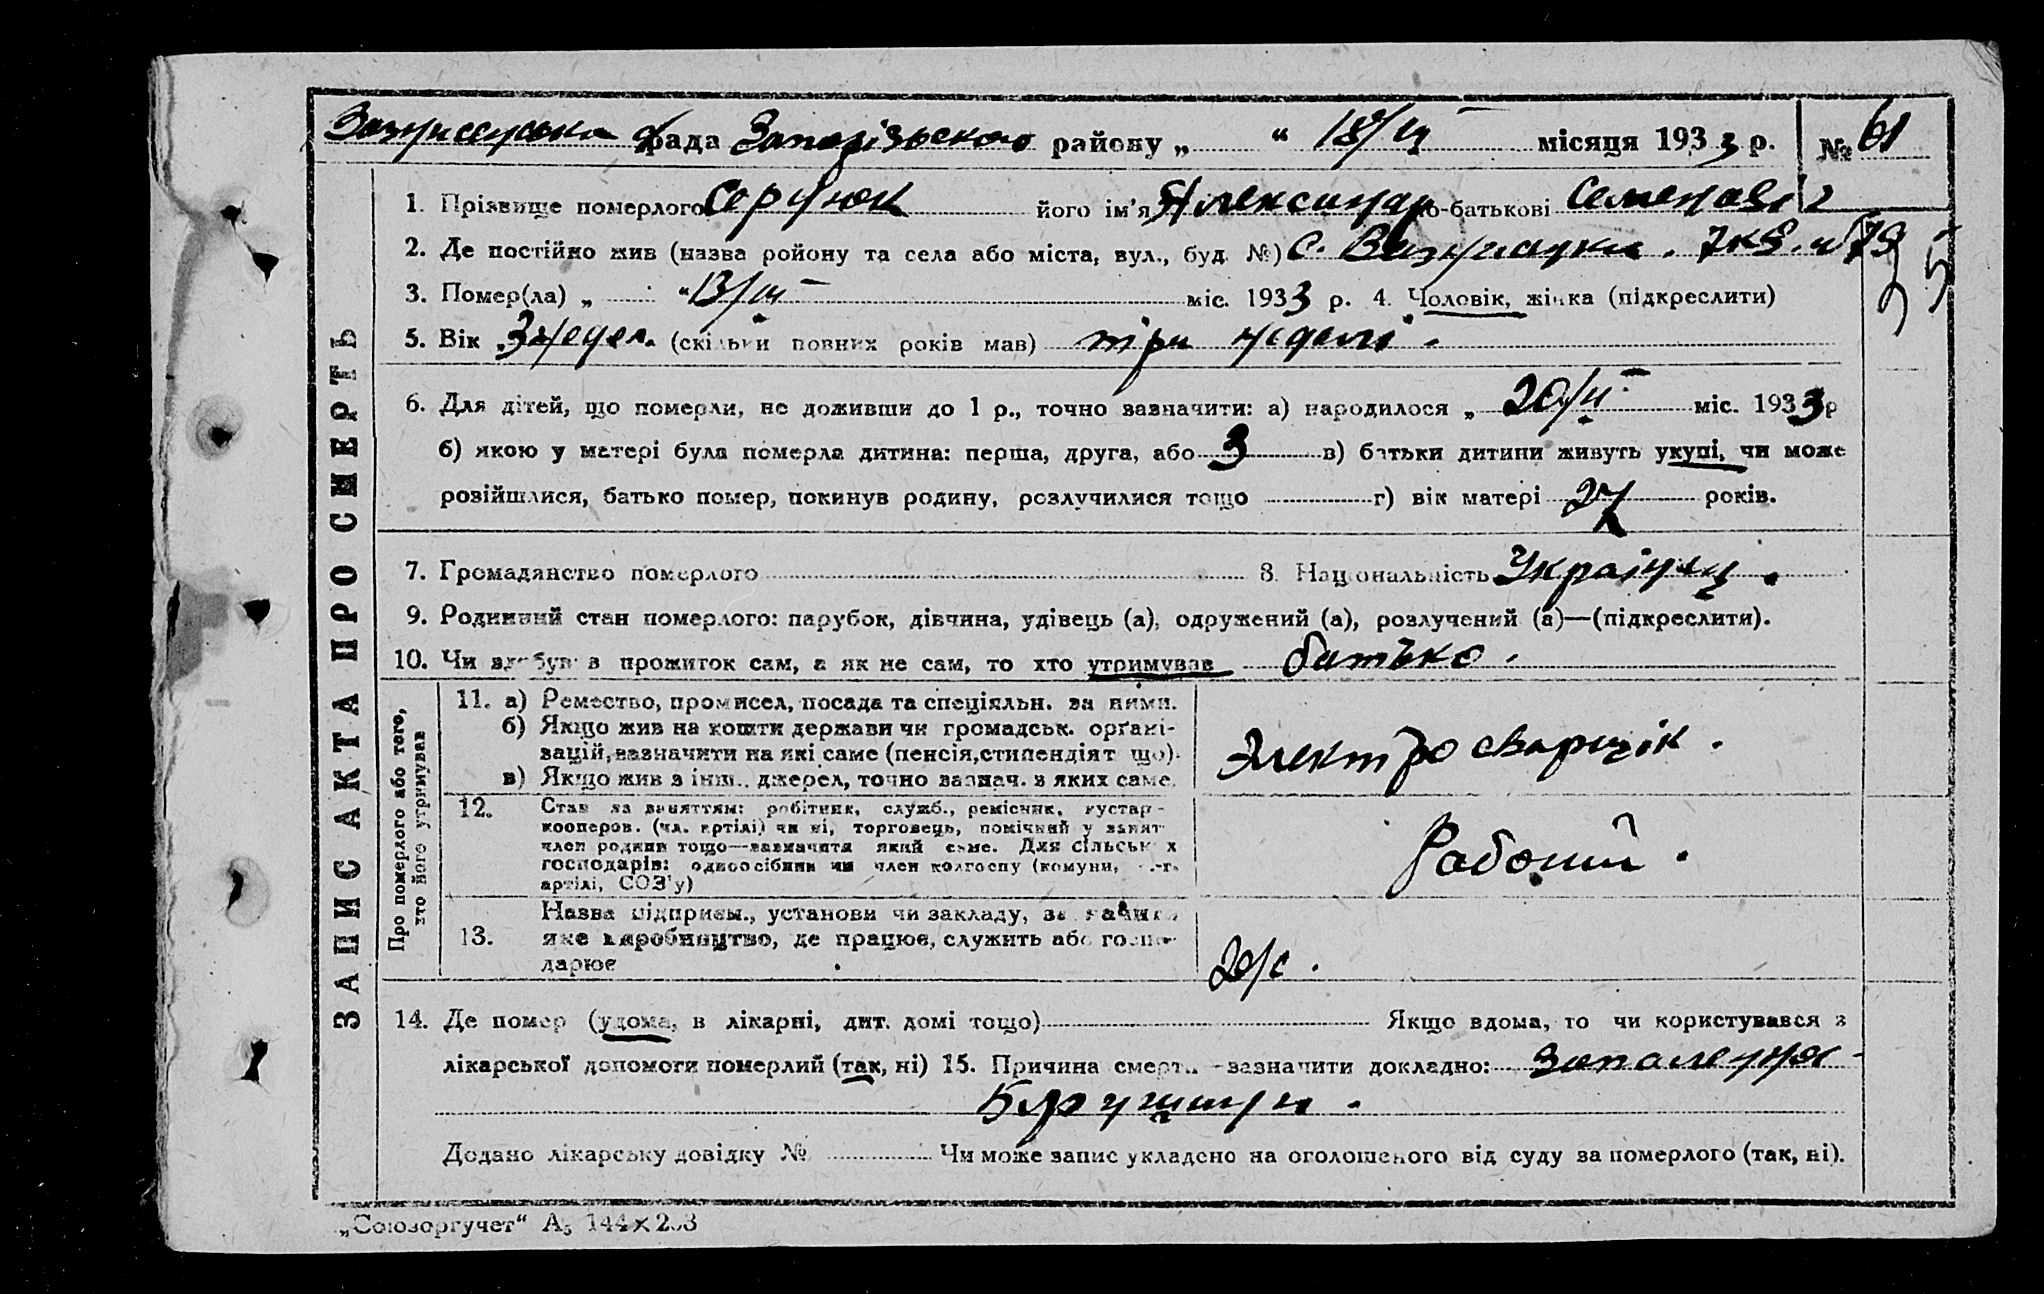 рада Запорізького району „ “ 18/III місяця 1933 р. № 61
1. Прізвище померлого Сердюк його ім’я Александр по-батькові Семенович
2. Де постійно жив (назва ройону та села або міста, вул., буд. №) с. 7 кв. № 79
3. Помер(ла) „ “ 13/III міс. 1933 р. 4. Чоловік, жінка (підкреслити)
5. Вік „3 недел. (скільки повних років мав) три неделі.
35
6. Для дітей, що померли, не доживши до 1 р., точно зазначити: а) народилося „ 20/II міс. 1933 р
б) якою у матері була померла дитина: перша, друга, або 3 в) батьки дитини живуть укупі, чи може
розійшлися, батько помер, покинув родину, розлучилися тощо г) вік матері 27 років.
7. Громадянство померлого 8. Національність Українец.
9. Родинний стан померлого: парубок, дівчина, удівець (а), одружений (а), розлучений (а)—(підкреслити).
10. Чи здобував прожиток сам, а як не сам, то хто утримував батько.
ЗАПИС АКТА ПРО СМЕРТЬ
Про померлого або того,
хто його утримував
11. а) Ремество, промисел, посада та спеціяльн. за ними.
б) Якщо жив на кошти держави чи громадськ. орґані-
зацій, вазначити на які саме (пенсія, стипендіят що).
в) Якщо жив з інш. джерел, точно вазнач. з яких саме.
Электросварщік.
12. Стан за заняттям: робітник, служб., ремісник, кустар-
кооперов. (чл. артілі) чи ні, торговець, помічний у занят
член родини тощо—вазначити який саме. Для сільських
господарів: одноосібний чи член колгоспу (комуни,
артілі, СОЗ’у)
Рабочий.
13. Назва підприєм., установи чи закладу,
яке виробництво, де працює, служить або госпо-
дарює
14. Де помер (удома, в лікарні, дит. домі тощо) Якщо вдома, то чи користувався з
лікарської допомоги померлий (так, ні) 15. Причина смерти—зазначити докладно: Запалення
Брушини.
Додано лікарську довідку № Чи може запис укладено на оголошеного від суду за померлого (так, ні).
„Союзоргучет“ А5 144×203